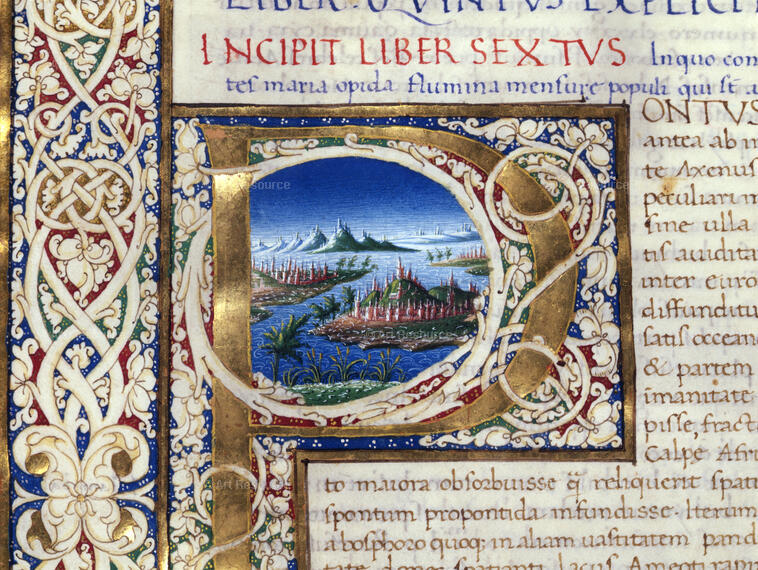 LIBER QVINTVS EXPLICI
INCIPIT LIBER SEXTVS In quo con
tes maria opida flumina mensure populi qui st a
PONTVS
antea ab in
te Axenus
peculiarum
sine ulla
tis auidita
inter euro
diffunditu
satis occean
& partem
imanitate
pisse, fract
Calpe Afri
to maiora obsorbuisse q̃ reliquerit spati
spontum propontida infundisse. Iterum
a bosphoro quoq; in aliam uastitatem pand
Art Resource
Art Resource
Art Resource